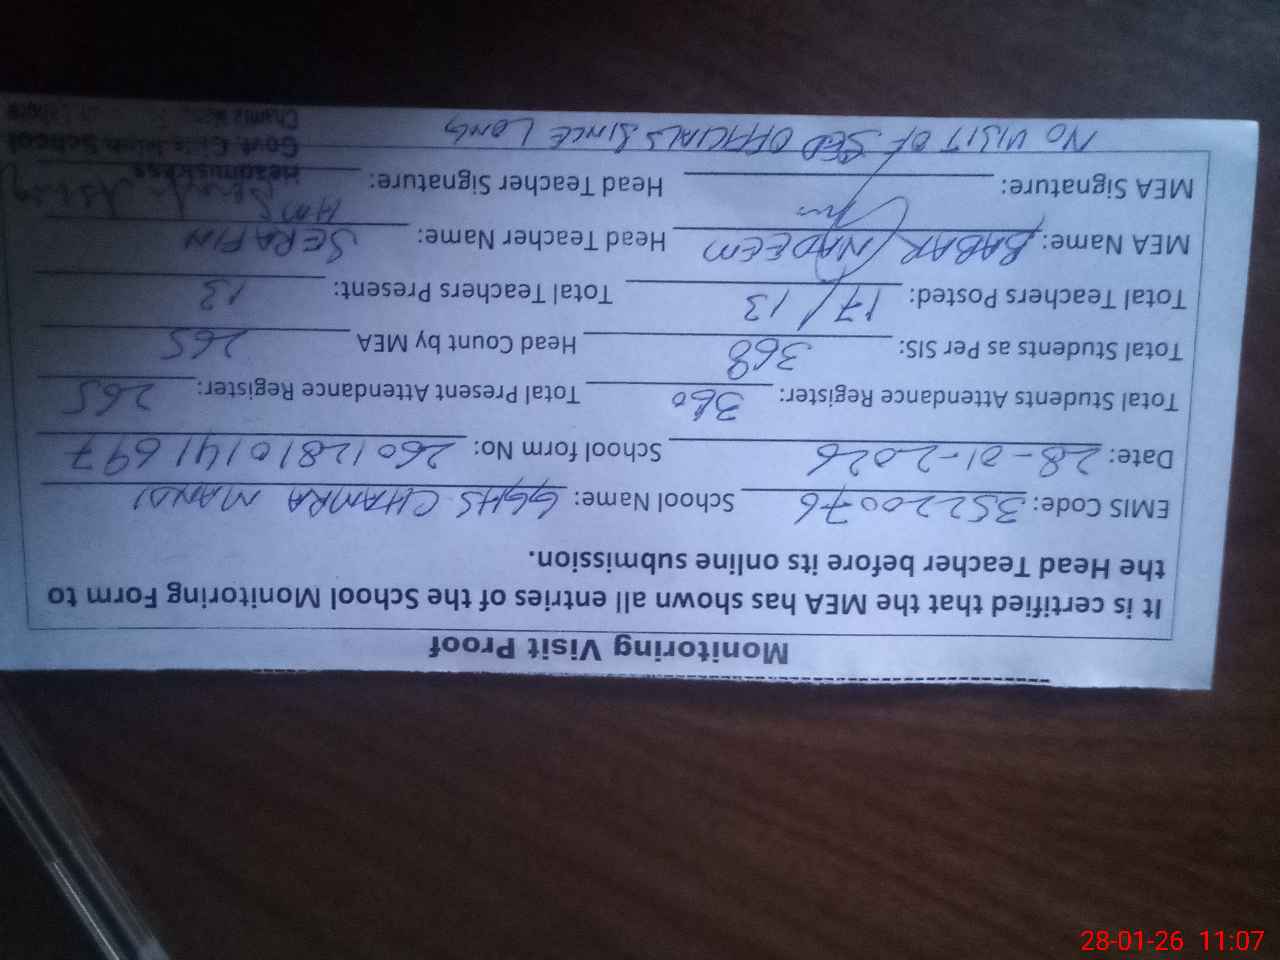 Monitoring Visit Proof
It is certified that the MEA has shown all entries of the School Monitoring Form to
the Head Teacher before its online submission.
EMIS Code: 35220076 School Name: GGHS CHAMRA MANDI
Date: 28-01-2026 School form No: 26012810141697
Total Students Attendance Register: 360 Total Present Attendance Register: 265
Total Students as Per SIS: 368 Head Count by MEA 265
Total Teachers Posted: 17/13 Total Teachers Present: 13
MEA Name: BABAR NADEEM Head Teacher Name: SERAFIN
MEA Signature: Head Teacher Signature:
Headmistress
Govt. Girls High School
NO VISIT OF SED OFFICIALS SINCE LONG
28-01-26 11:07